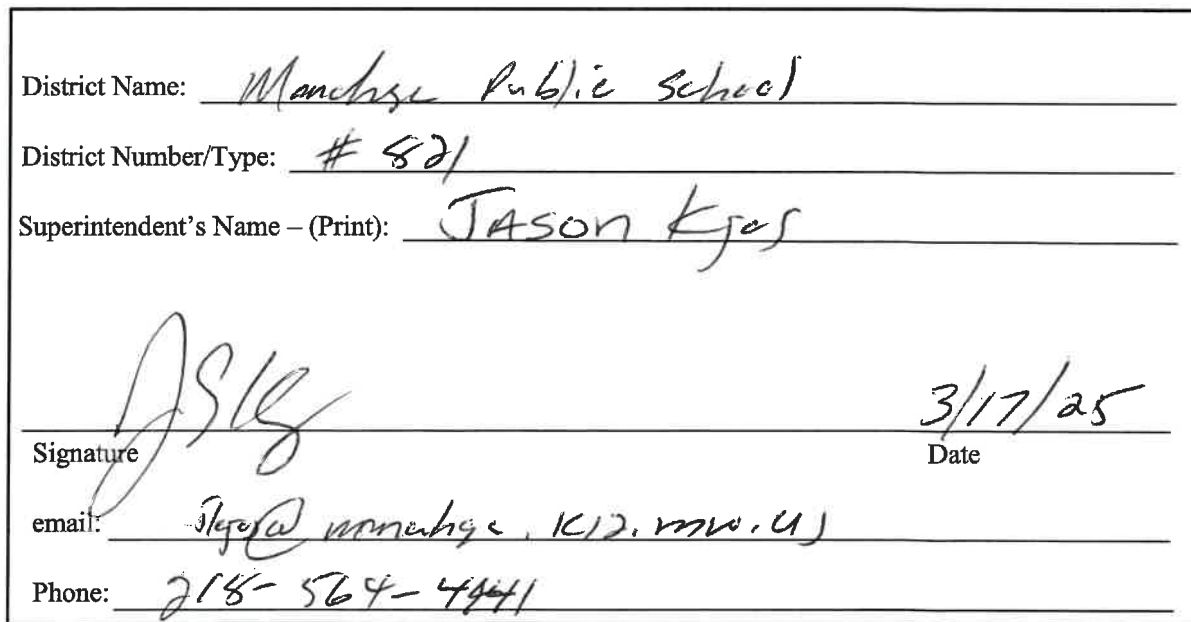 District Name: Menahga Public School
District Number/Type: # 821
Superintendent's Name – (Print): JASON Kjos
Signature
3/17/25
Date
email: jkjos@menahga.k12.mn.us
Phone: 218-564-4141